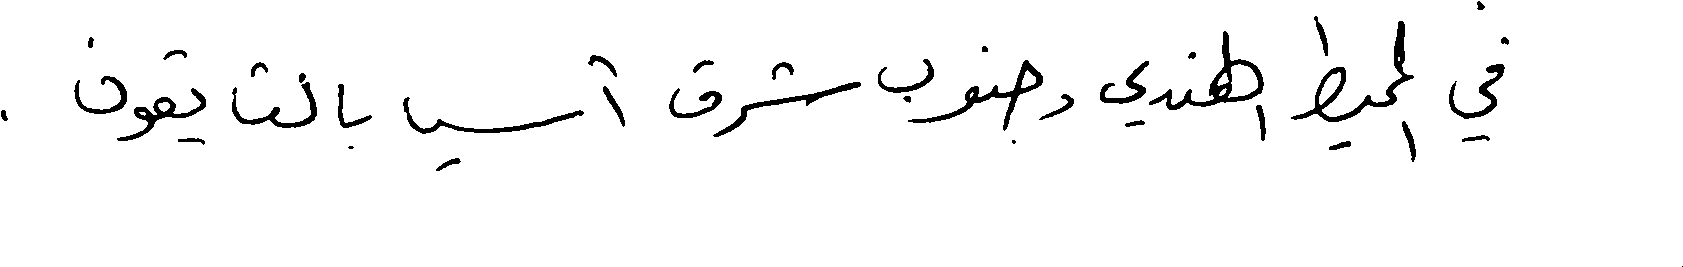 في المحيط الهندي وجنوب شرق آسيا بالتايقون .